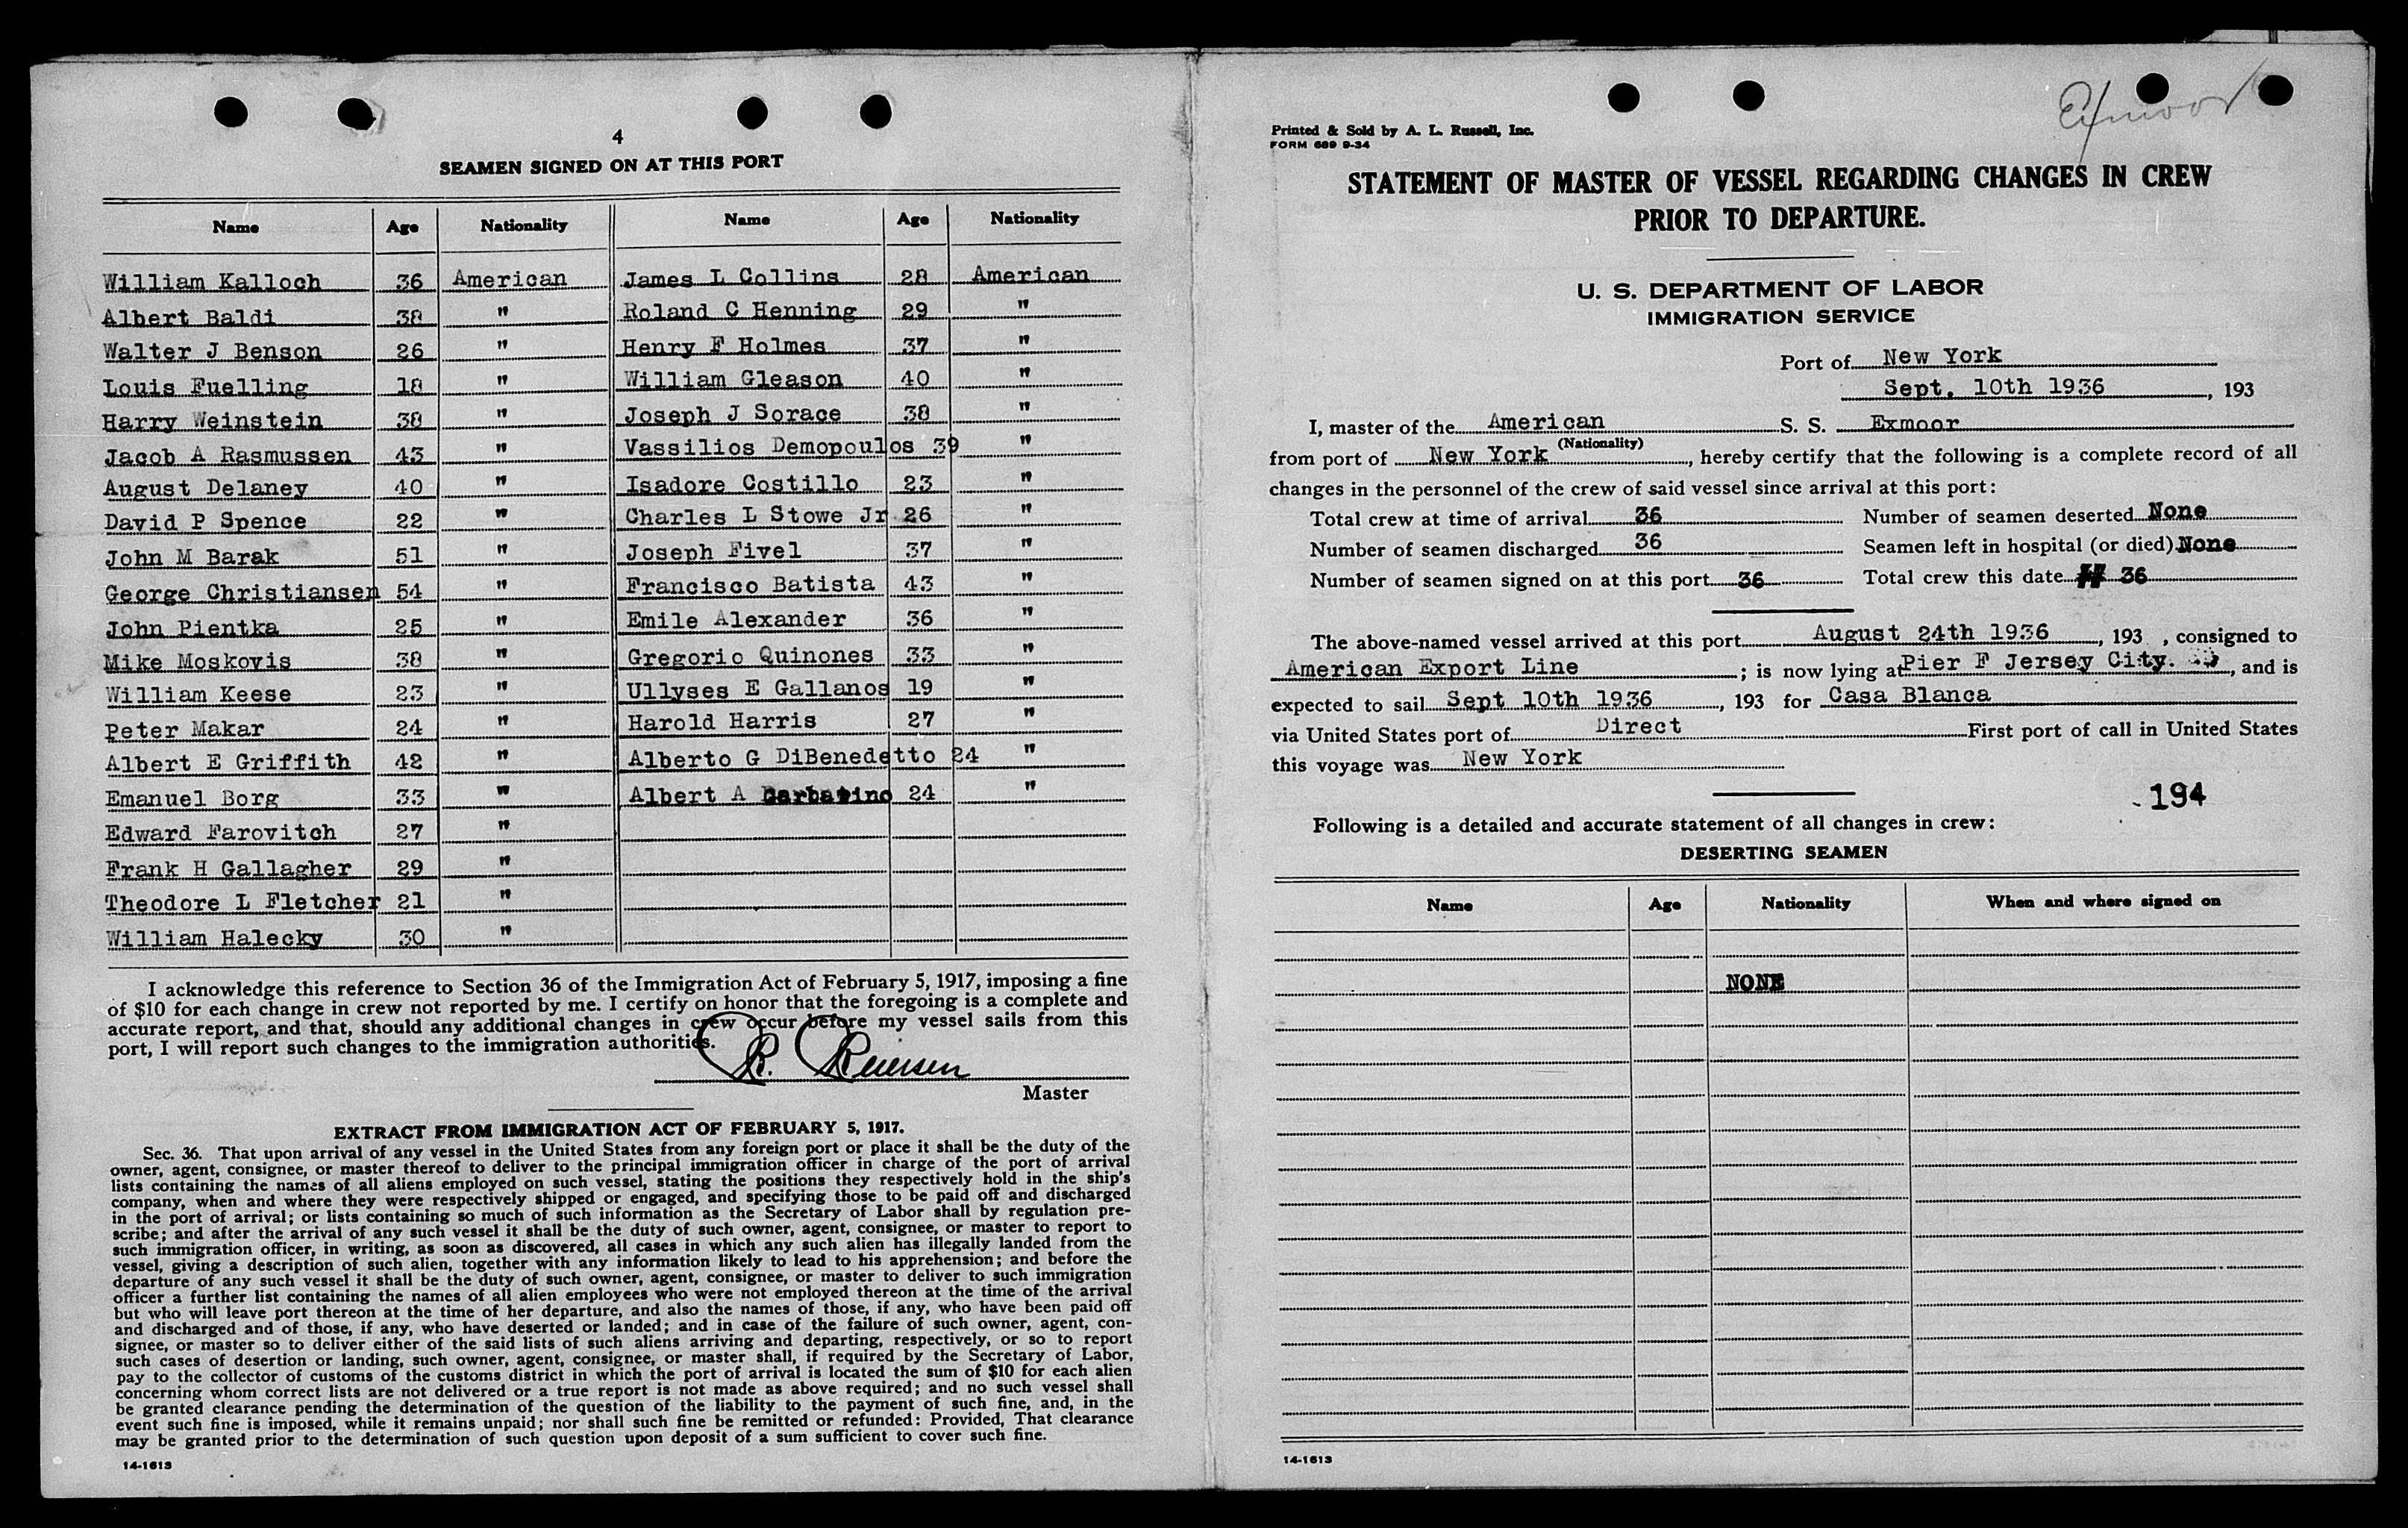 4
SEAMEN SIGNED ON AT THIS PORT
Name Age Nationality Name Age Nationality
William Kalloch 36 American James L Collins 28 American
Albert Baldi 38 " Roland C Henning 29 "
Walter J Benson 26 " Henry F Holmes 37 "
Louis Fuelling 18 " William Gleason 40 "
Harry Weinstein 38 " Joseph J Sorace 38 "
Jacob A Rasmussen 43 " Vassilios Demopoulos 39 "
August Delaney 40 " Isadore Costillo 23 "
David P Spence 22 " Charles L Stowe Jr 26 "
John M Barak 51 " Joseph Fivel 37 "
George Christiansen 54 " Francisco Batista 43 "
John Pientka 25 " Emile Alexander 36 "
Mike Moskovis 38 " Gregorio Quinones 33 "
William Keese 23 " Ullyses E Gallanos 19 "
Peter Makar 24 " Harold Harris 27 "
Albert E Griffith 42 " Alberto G DiBenedetto 24 "
Emanuel Borg 33 " Albert A 24 "
Edward Farovitch 27 "
Frank H Gallagher 29 "
Theodore L Fletcher 21 "
William Halecky 30 "
I acknowledge this reference to Section 36 of the Immigration Act of February 5, 1917, imposing a fine
of $10 for each change in crew not reported by me. I certify on honor that the foregoing is a complete and
accurate report, and that, should any additional changes in crew occur before my vessel sails from this
port, I will report such changes to the immigration authorities.
R.
Master
EXTRACT FROM IMMIGRATION ACT OF FEBRUARY 5, 1917.
Sec. 36. That upon arrival of any vessel in the United States from any foreign port or place it shall be the duty of the
owner, agent, consignee, or master thereof to deliver to the principal immigration officer in charge of the port of arrival
lists containing the names of all aliens employed on such vessel, stating the positions they respectively hold in the ship's
company, when and where they were respectively shipped or engaged, and specifying those to be paid off and discharged
in the port of arrival; or lists containing so much of such information as the Secretary of Labor shall by regulation pre-
scribe; and after the arrival of any such vessel it shall be the duty of such owner, agent, consignee, or master to report to
such immigration officer, in writing, as soon as discovered, all cases in which any such alien has illegally landed from the
vessel, giving a description of such alien, together with any information likely to lead to his apprehension; and before the
departure of any such vessel it shall be the duty of such owner, agent, consignee, or master to deliver to such immigration
officer a further list containing the names of all alien employees who were not employed thereon at the time of the arrival
but who will leave port thereon at the time of her departure, and also the names of those, if any, who have been paid off
and discharged and of those, if any, who have deserted or landed; and in case of the failure of such owner, agent, con-
signee, or master so to deliver either of the said lists of such aliens arriving and departing, respectively, or so to report
such cases of desertion or landing, such owner, agent, consignee, or master shall, if required by the Secretary of Labor,
pay to the collector of customs of the customs district in which the port of arrival is located the sum of $10 for each alien
concerning whom correct lists are not delivered or a true report is not made as above required; and no such vessel shall
be granted clearance pending the determination of the question of the liability to the payment of such fine, and, in the
event such fine is imposed, while it remains unpaid; nor shall such fine be remitted or refunded: Provided, That clearance
may be granted prior to the determination of such question upon deposit of a sum sufficient to cover such fine.
14-1613
Exmoor
Printed & Sold by A. L. Russell, Inc.
FORM 689 9-34
STATEMENT OF MASTER OF VESSEL REGARDING CHANGES IN CREW
PRIOR TO DEPARTURE.
U. S. DEPARTMENT OF LABOR
IMMIGRATION SERVICE
Port of New York
Sept. 10th 1936, 193
I, master of the American S. S. Exmoor
(Nationality)
from port of New York, hereby certify that the following is a complete record of all
changes in the personnel of the crew of said vessel since arrival at this port:
Total crew at time of arrival 36 Number of seamen deserted None
Number of seamen discharged 36 Seamen left in hospital (or died) None
Number of seamen signed on at this port 36 Total crew this date 36
The above-named vessel arrived at this port August 24th 1936, 193 , consigned to
American Export Line ; is now lying at Pier F Jersey City. , and is
expected to sail Sept 10th 1936, 193 for Casa Blanca
via United States port of Direct First port of call in United States
this voyage was New York
194
Following is a detailed and accurate statement of all changes in crew:
DESERTING SEAMEN
Name Age Nationality When and where signed on
NONE
14-1613